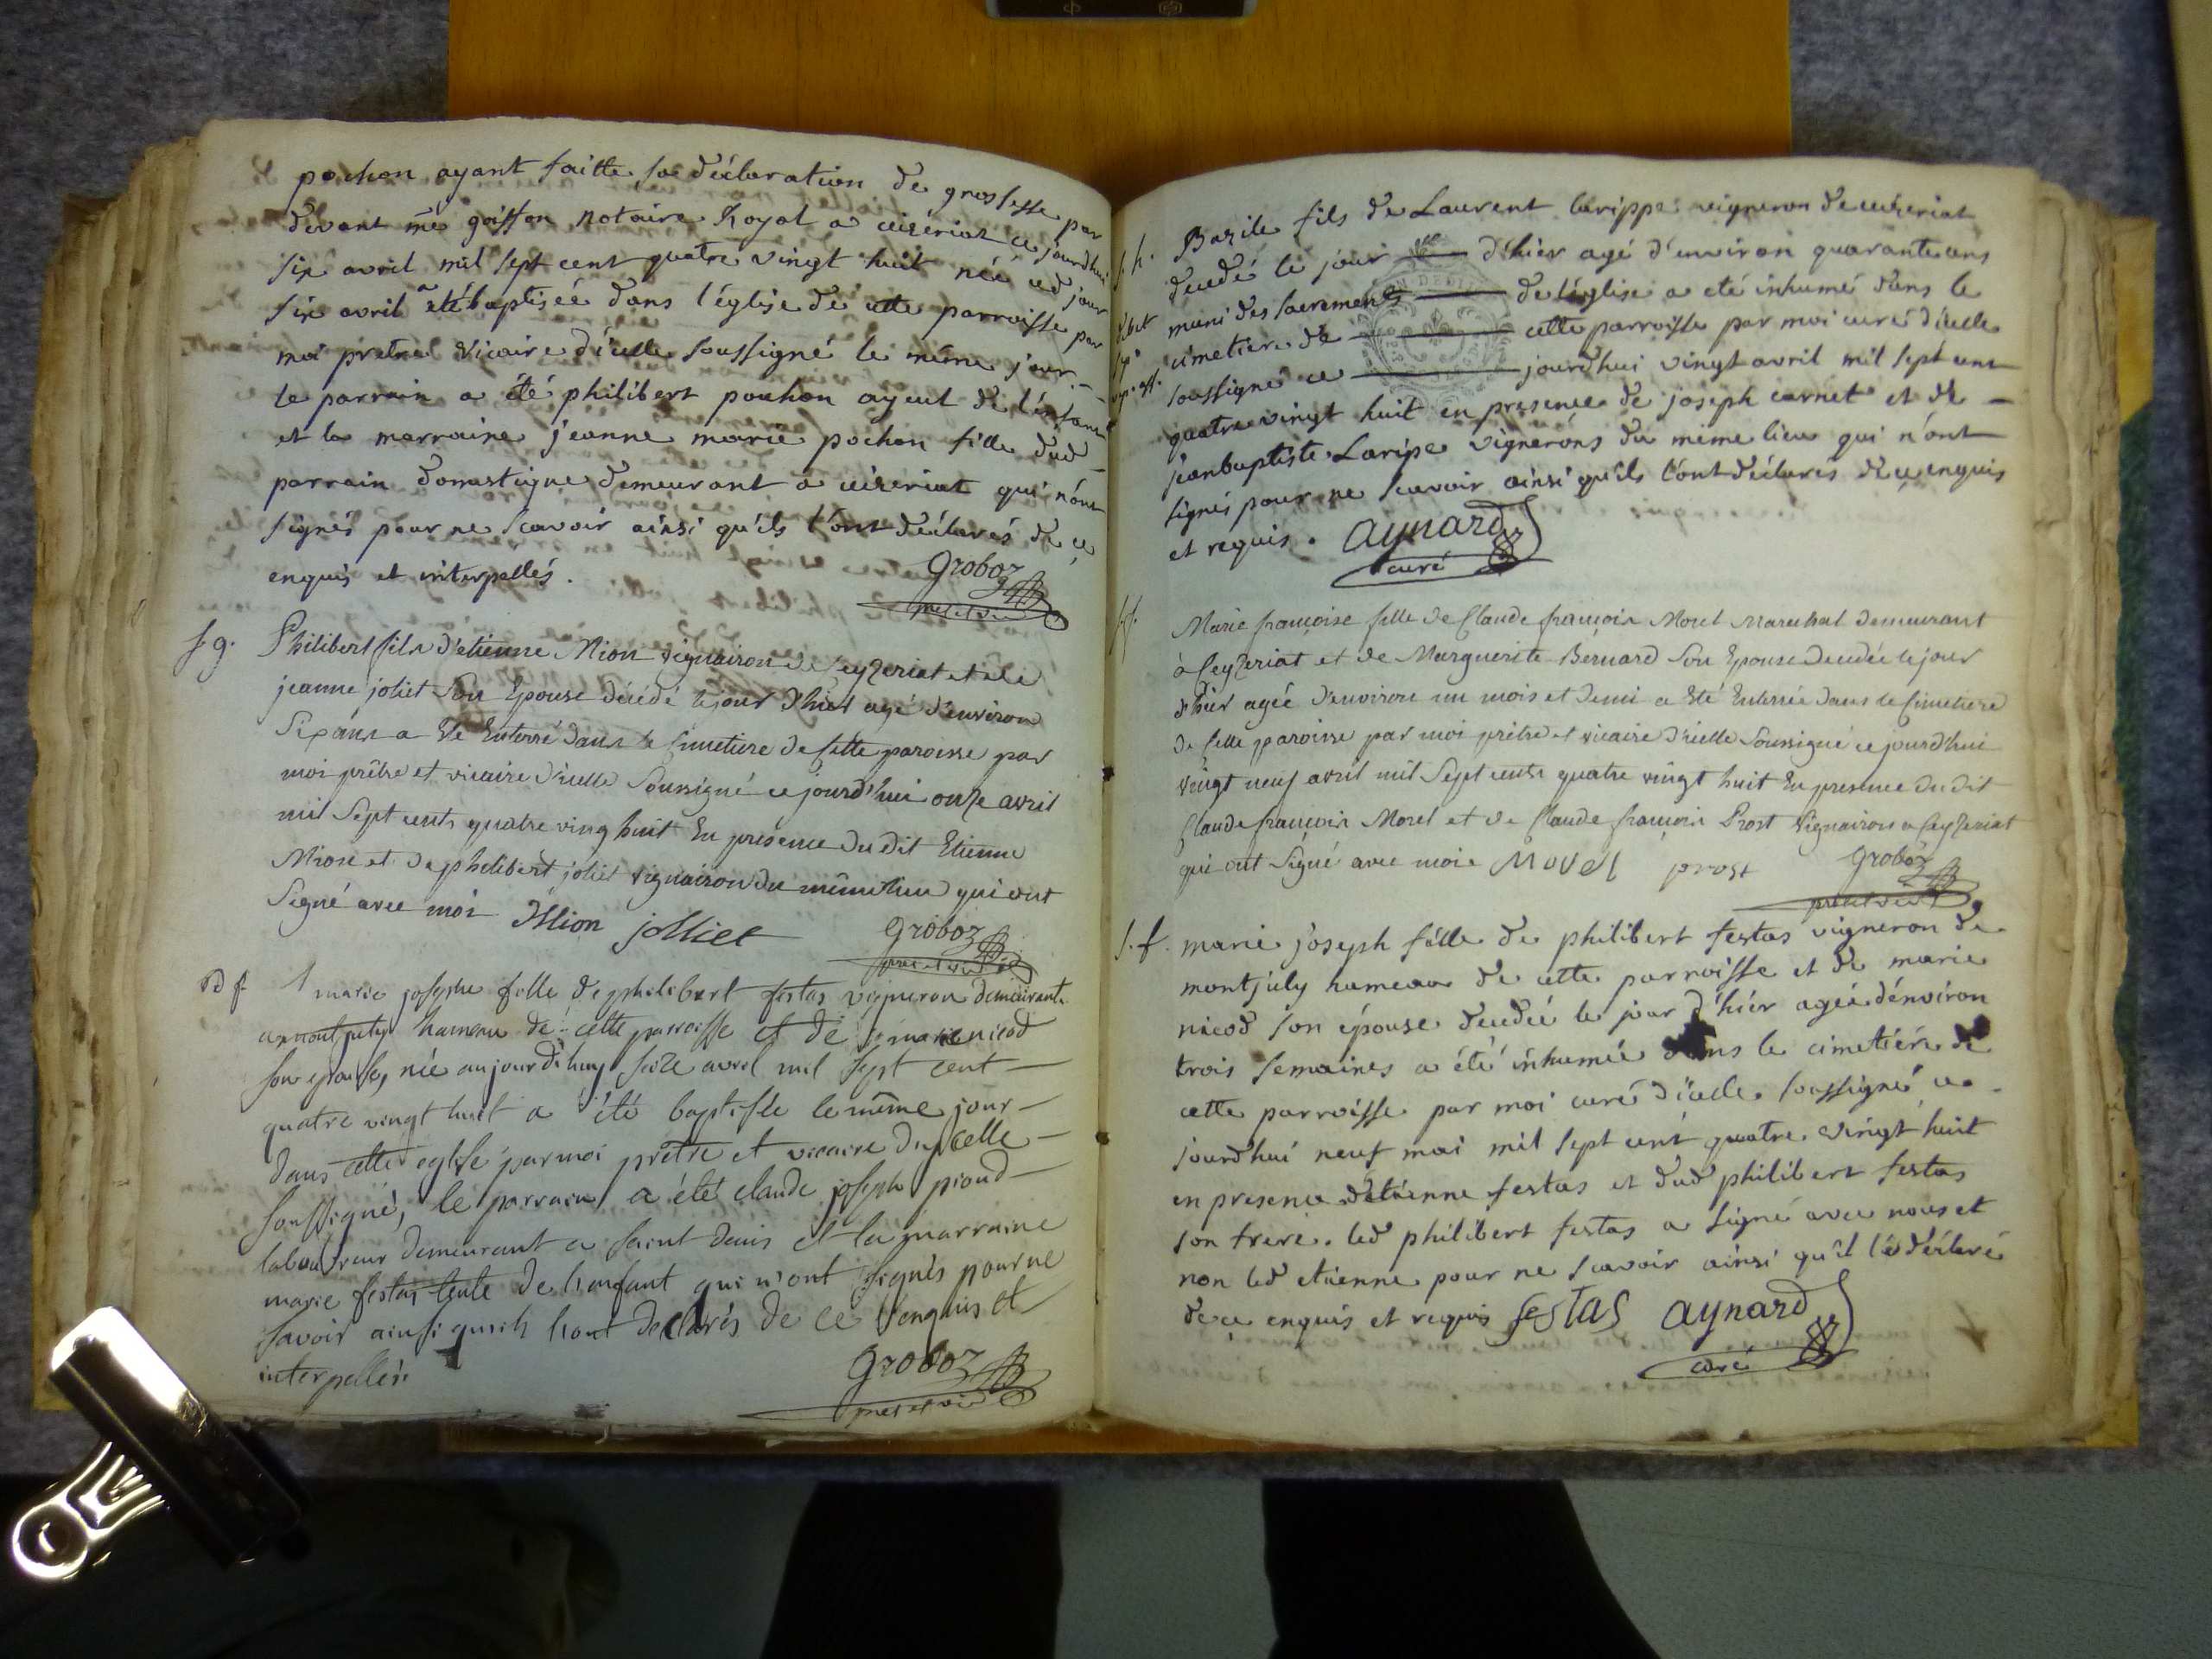 pochon ayant faitte sa déclaration de grossesse par
devant me goisson notaire Royal a ceizeriat ce jourdhui
six avril mil sept cent quatre vingt huit née led jour
six avril a eté baptiséé dans l'église de cette parroisse par
moi pretre vicaire d'icelle soussigné le même jour. –
le parrain a été philibert pochon ayeul de l'enfant
et la marraine jeanne marie pochon fille dud –
parrain domestique demeurant a ceizeriat qui n'ont
signés pour ne scavoir ainsi qu'ils l'ont déclarés de ce
enquis et interpellés.
Groboz
pretre et vic
s. g. Philibert fils d'etienne Mion vignairon de Ceyzeriat et de
jeanne joliet son Epouse décédé le jour d'hier agé d'environ
Six ans a Eté Enterré dans le Cimetiere de Cette paroisse par
moi prêtre et vicaire d'icelle Soussigné ce jourd'hui onze avril
mil Sept cents quatre ving huit En presence du dit Etienne
Mion et de philibert joliet vignairon du même lieu qui ont
Signé avec moi Mion jolliet
Groboz
pretre et vic
bd f marie josephe fille de philibert festas vigneron demeurant
a montjuly hameau de cette parroisse et de marie nicod
son epouse, née aujourd'huy seize avril mil sept cent –
quatre vingt huit a été baptisée le même jour –
dans cette eglise par moi prêtre et vicaire d'icelle –
soussigné, le parrain a été claude joseph piond –
laboureur demeurant a saint denis et la marraine
marie festas tente de l'enfant qui n'ont signés pour ne
savoir ainsi qu'ils l'ont declarés de ce enquis et
interpellés.
Groboz
pretre et vic
s. h. Bazile fils de Laurent larippe vigneron de ceizeriat
decedé le jour d'hier agé d'environ quarante ans
muni des sacrements de l'église a eté inhumé dans le
cimetiere de cette parroisse par moi curé d'icelle
soussigné ce jourdhui vingt avril mil sept cent
quatre vingt huit en presence de joseph carnet et de –
jeanbaptiste Laripe vignerons du même lieu qui n'ont
signés pour ne scavoir ainsi qu'ils l'ont déclarés de ce enquis
et requis. Aynard
curé
s. f. Marie françoise fille de Claude françois Morel Marechal demeurant
à Ceyzeriat et de Marguerite Bernard Son Epouse decedée le jour
d'hier agée d'environ un mois et demi a Eté Enterrée dans le Cimetiere
de Cette paroisse par moi prêtre et vicaire d'icelle Soussigné ce jourd'hui
vingt neuf avril mil Sept cents quatre vingt huit En presence du dit
Claude françois Morel et de Claude françois Prost Vignairon a Ceyzeriat
qui ont Signé avec moi Morel prost Groboz
pretre et vic
s. f. marie joseph fille de philibert festas vigneron de
montjuly hameau de cette parroisse et de marie
nicod son épouse decédée le jour d'hier agée d'environ
trois semaines a été inhumée dans le cimetiére de
cette parroisse par moi curé d'icelle soussigné ce –
jourdhui neuf mai mil sept cent quatre vingt huit
en presence d'etienne festas et dud philibert festas
son frere. led philibert festas a signé avec nous et
non led etienne pour ne scavoir ainsi qu'il l'a déclaré
de ce enquis et requis festas Aynard
curé